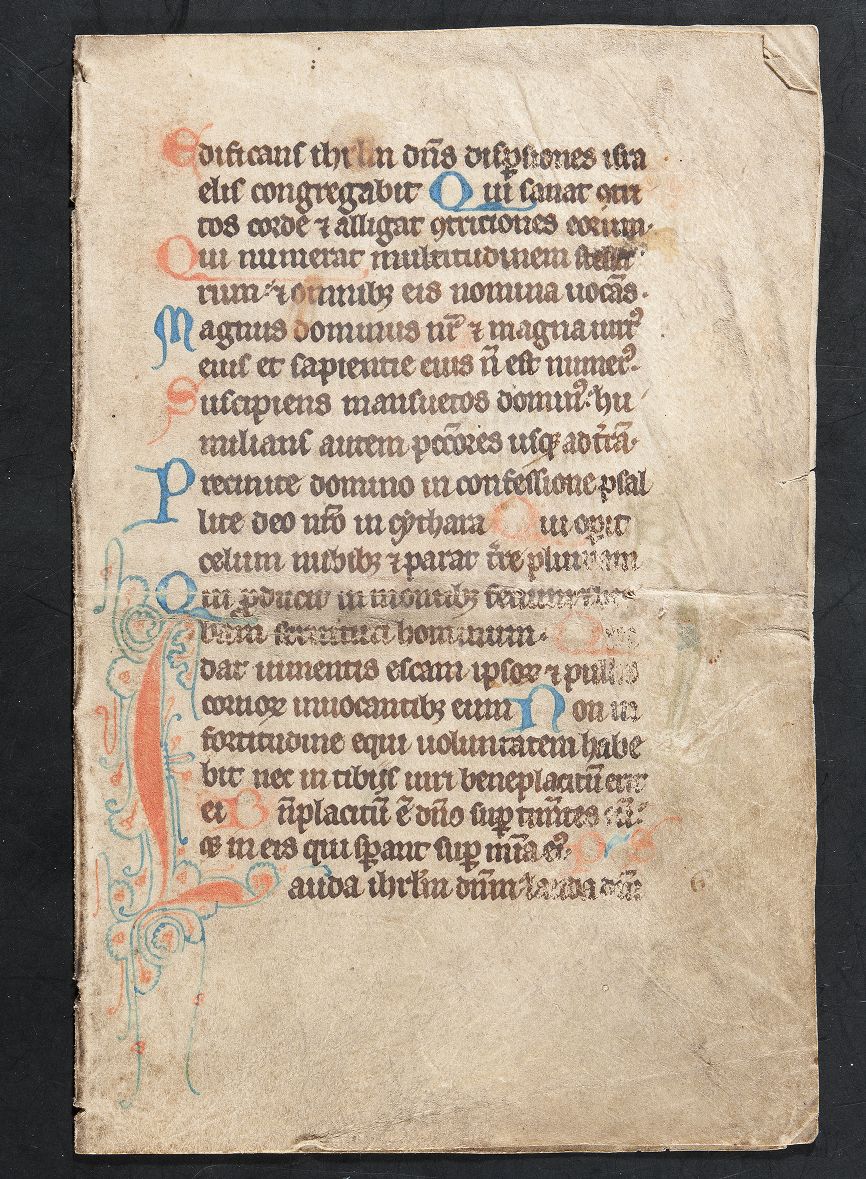 Edificans ihrłm dñs dispsiones isra
elis congregabit Qui sanat ꝯtri
tos corde ⁊ alligat ꝯtritiones eorum·
Qui numerat multitudinem stella
rum· ⁊ omnibꝫ eis nomina uocãs·
Magnus dominus nr̃ ⁊ magna uirtꝰ
eius et sapientie eius ñ est numerꝰ·
Suscipiens mansuetos dominꝰ· hu
milians autem pccõres usqꝫ ad tr̃ã·
Precinite domino in confessione psal
lite deo nrõ in cythara Qui opit
celum nubibꝫ ⁊ parat tr̃re pluuiam
Qui ꝓducit in montibꝫ fenum ⁊ her
bam seruituti hominum· Qui
dat iumentis escam ipsoꝝ ⁊ pullis
coruoꝝ inuocantibꝫ eum Non in
fortitudine equi uoluntatem habe
bit nec in tibijs uiri beneplacitũ erit
ei Bñplacitũ ẽ dño suꝑ timẽtes eũ·
⁊ in eis qui sꝑant suꝑ mĩa eiꝰ·
Lauda ihrłm dñm lauda dũ